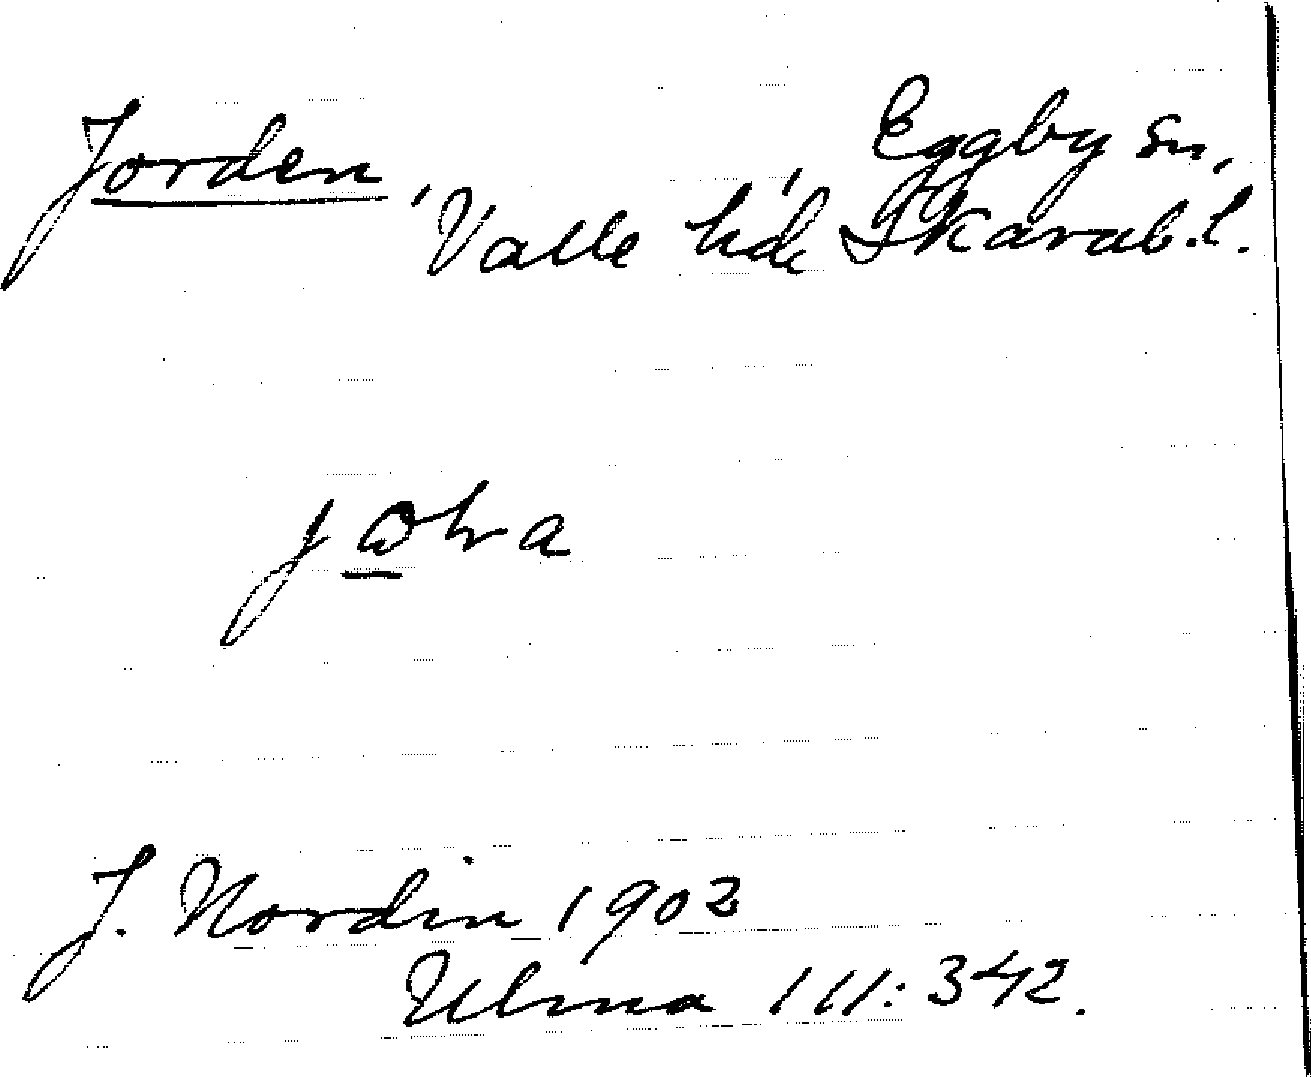 Jorden, Eggby sn,
Valle hd, Skarab.l.
J. Nordin 1902
Ulma 111:342.